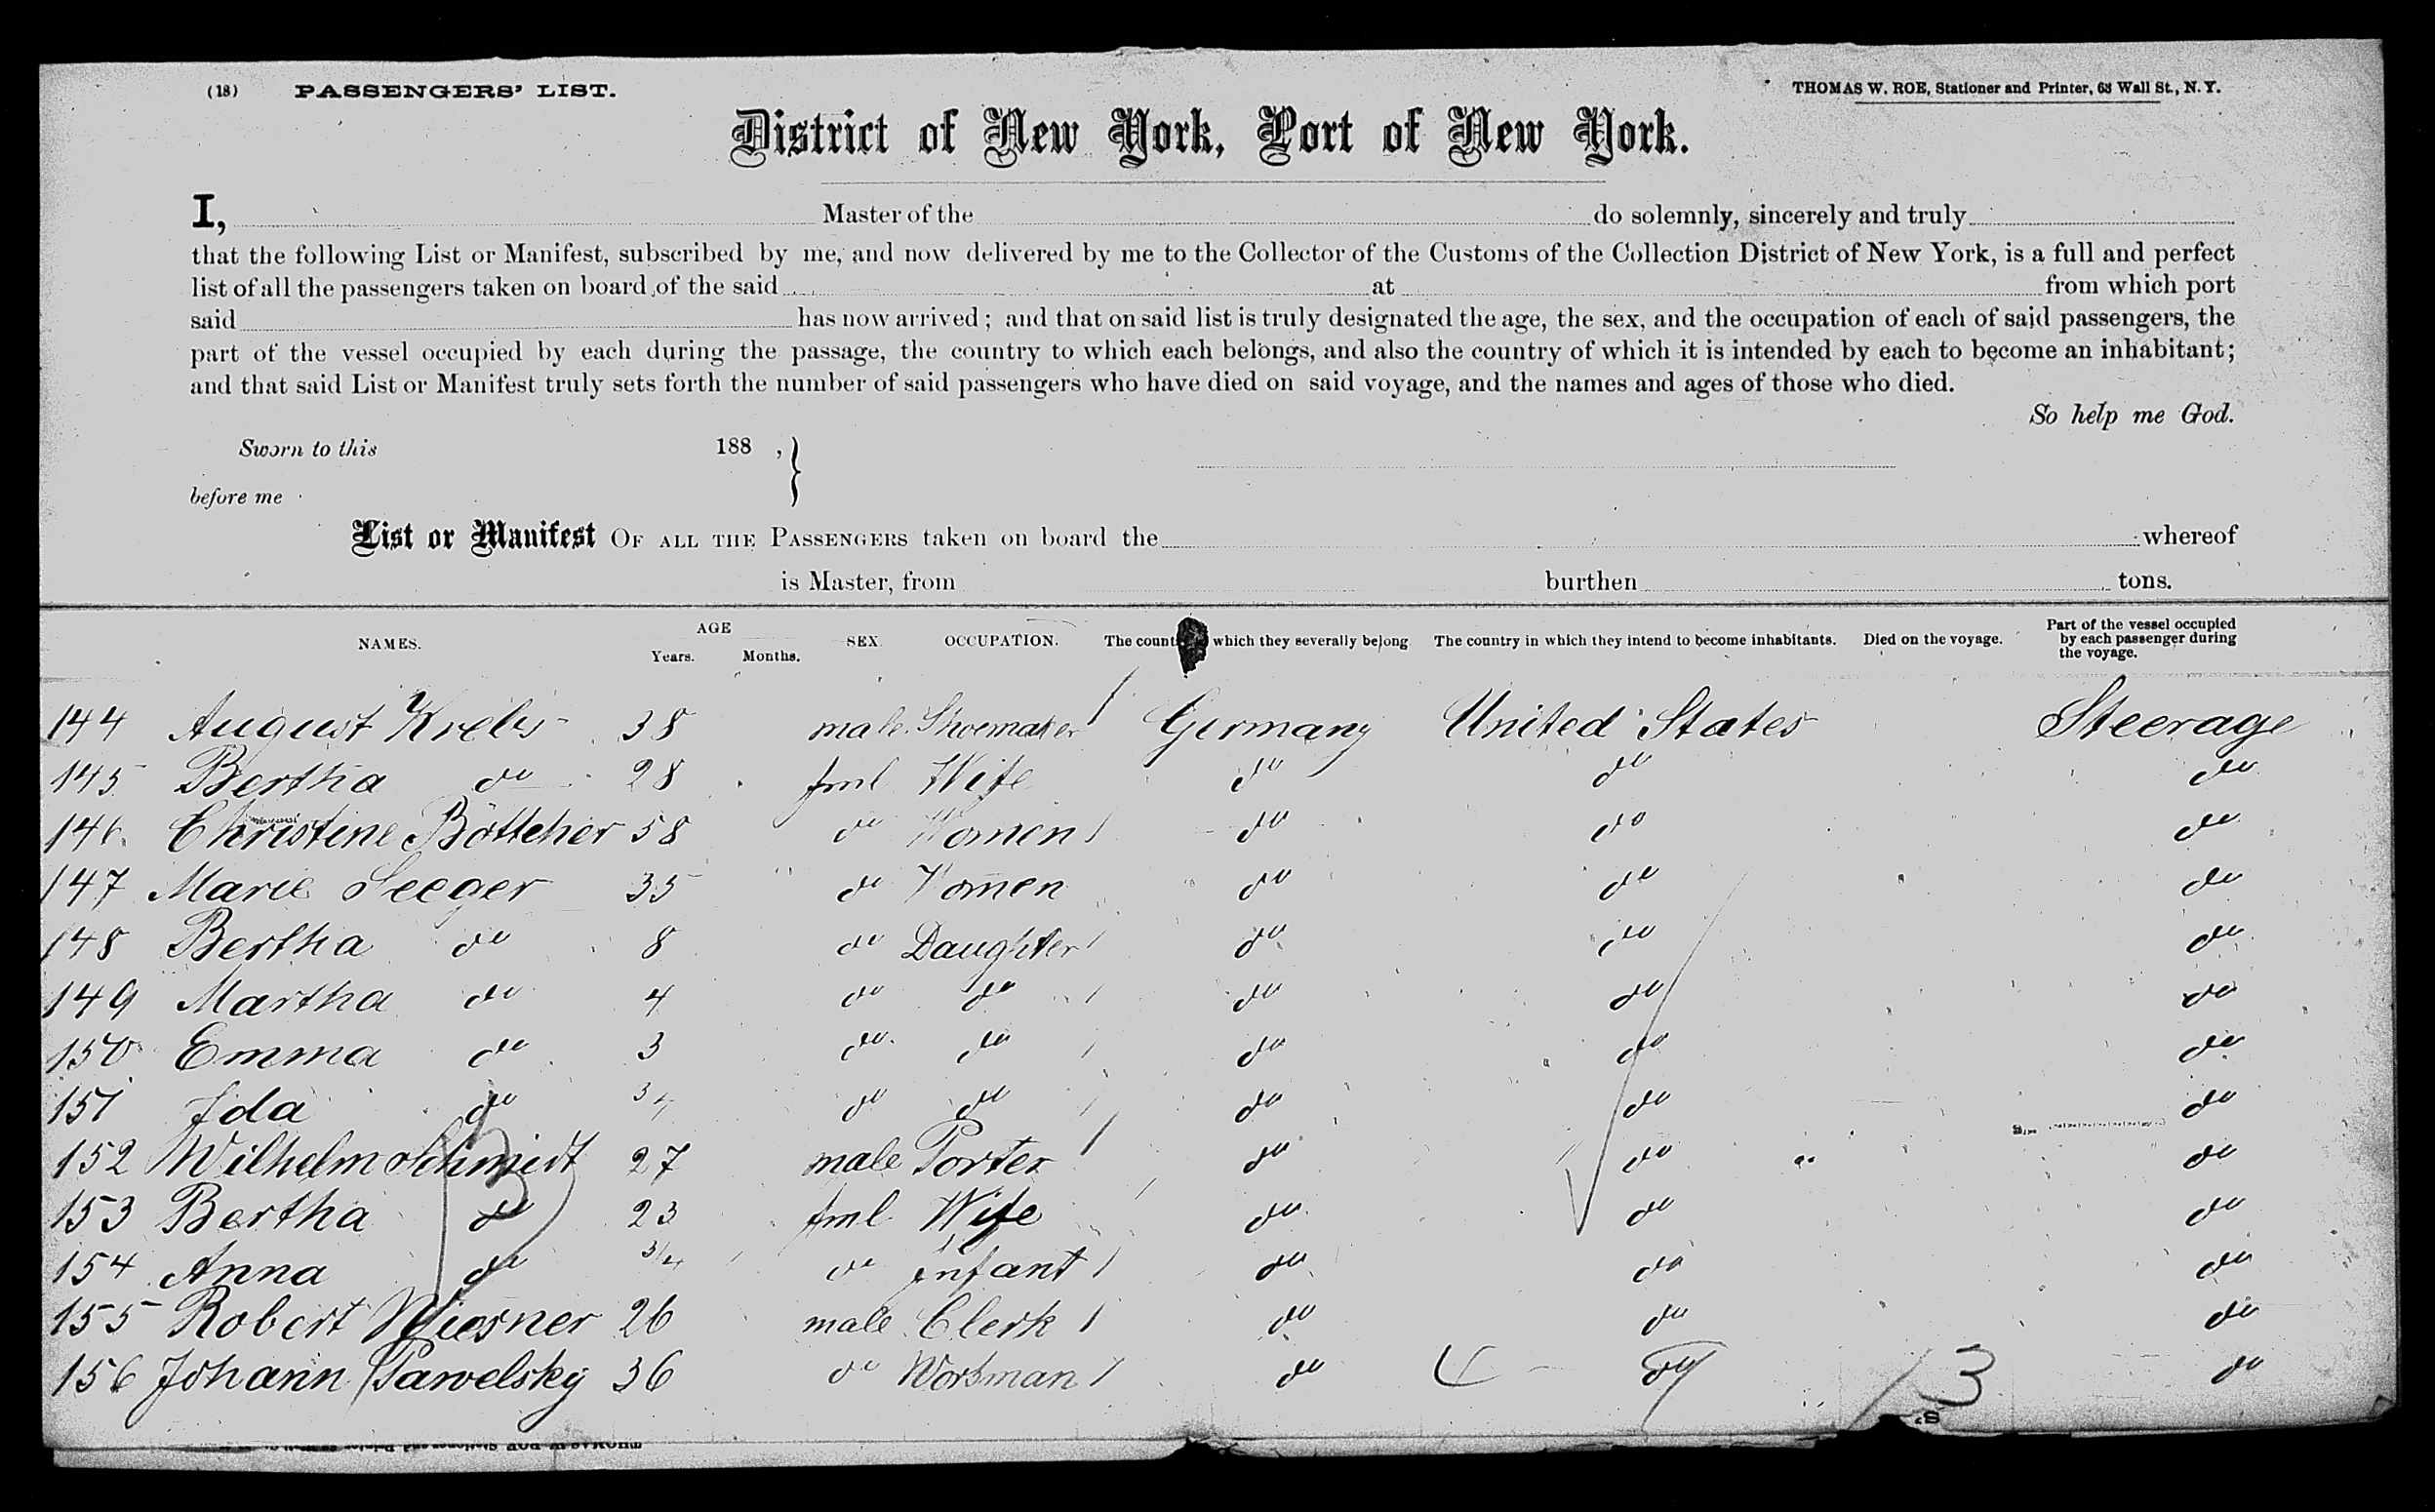 (18) PASSENGERS' LIST. THOMAS W. ROE, Stationer and Printer, 63 Wall St., N. Y.
District of New York, Port of New York.
I, Master of the do solemnly, sincerely and truly
that the following List or Manifest, subscribed by me, and now delivered by me to the Collector of the Customs of the Collection District of New York, is a full and perfect
list of all the passengers taken on board of the said at from which port
said has now arrived; and that on said list is truly designated the age, the sex, and the occupation of each of said passengers, the
part of the vessel occupied by each during the passage, the country to which each belongs, and also the country of which it is intended by each to become an inhabitant;
and that said List or Manifest truly sets forth the number of said passengers who have died on said voyage, and the names and ages of those who died.
So help me God.
Sworn to this 188 ,
before me
List or Manifest OF ALL THE PASSENGERS taken on board the whereof
is Master, from burthen tons.
NAMES. AGE Years. Months. SEX. OCCUPATION. The count which they severally belong The country in which they intend to become inhabitants. Died on the voyage. Part of the vessel occupied by each passenger during the voyage.
144 August Krebs 38 male Shoemaker Germany United States Steerage
145 Bertha do 28 fml Wife do do do
146 Christine Böttcher 58 do Women do do do
147 Marie Seeger 35 do Women do do do
148 Bertha do 8 do Daughter do do do
149 Martha do 4 do do do do do
150 Emma do 3 do do do do do
151 Ida do do do do do do
152 Wilhelm Schmidt 27 male Porter do do do
153 Bertha do 23 fml Wife do do do
154 Anna do 3/4 do infant do do do
155 Robert Wiesner 26 male Clerk do do do
156 Johann Pawelsky 36 do Workman do do do
13